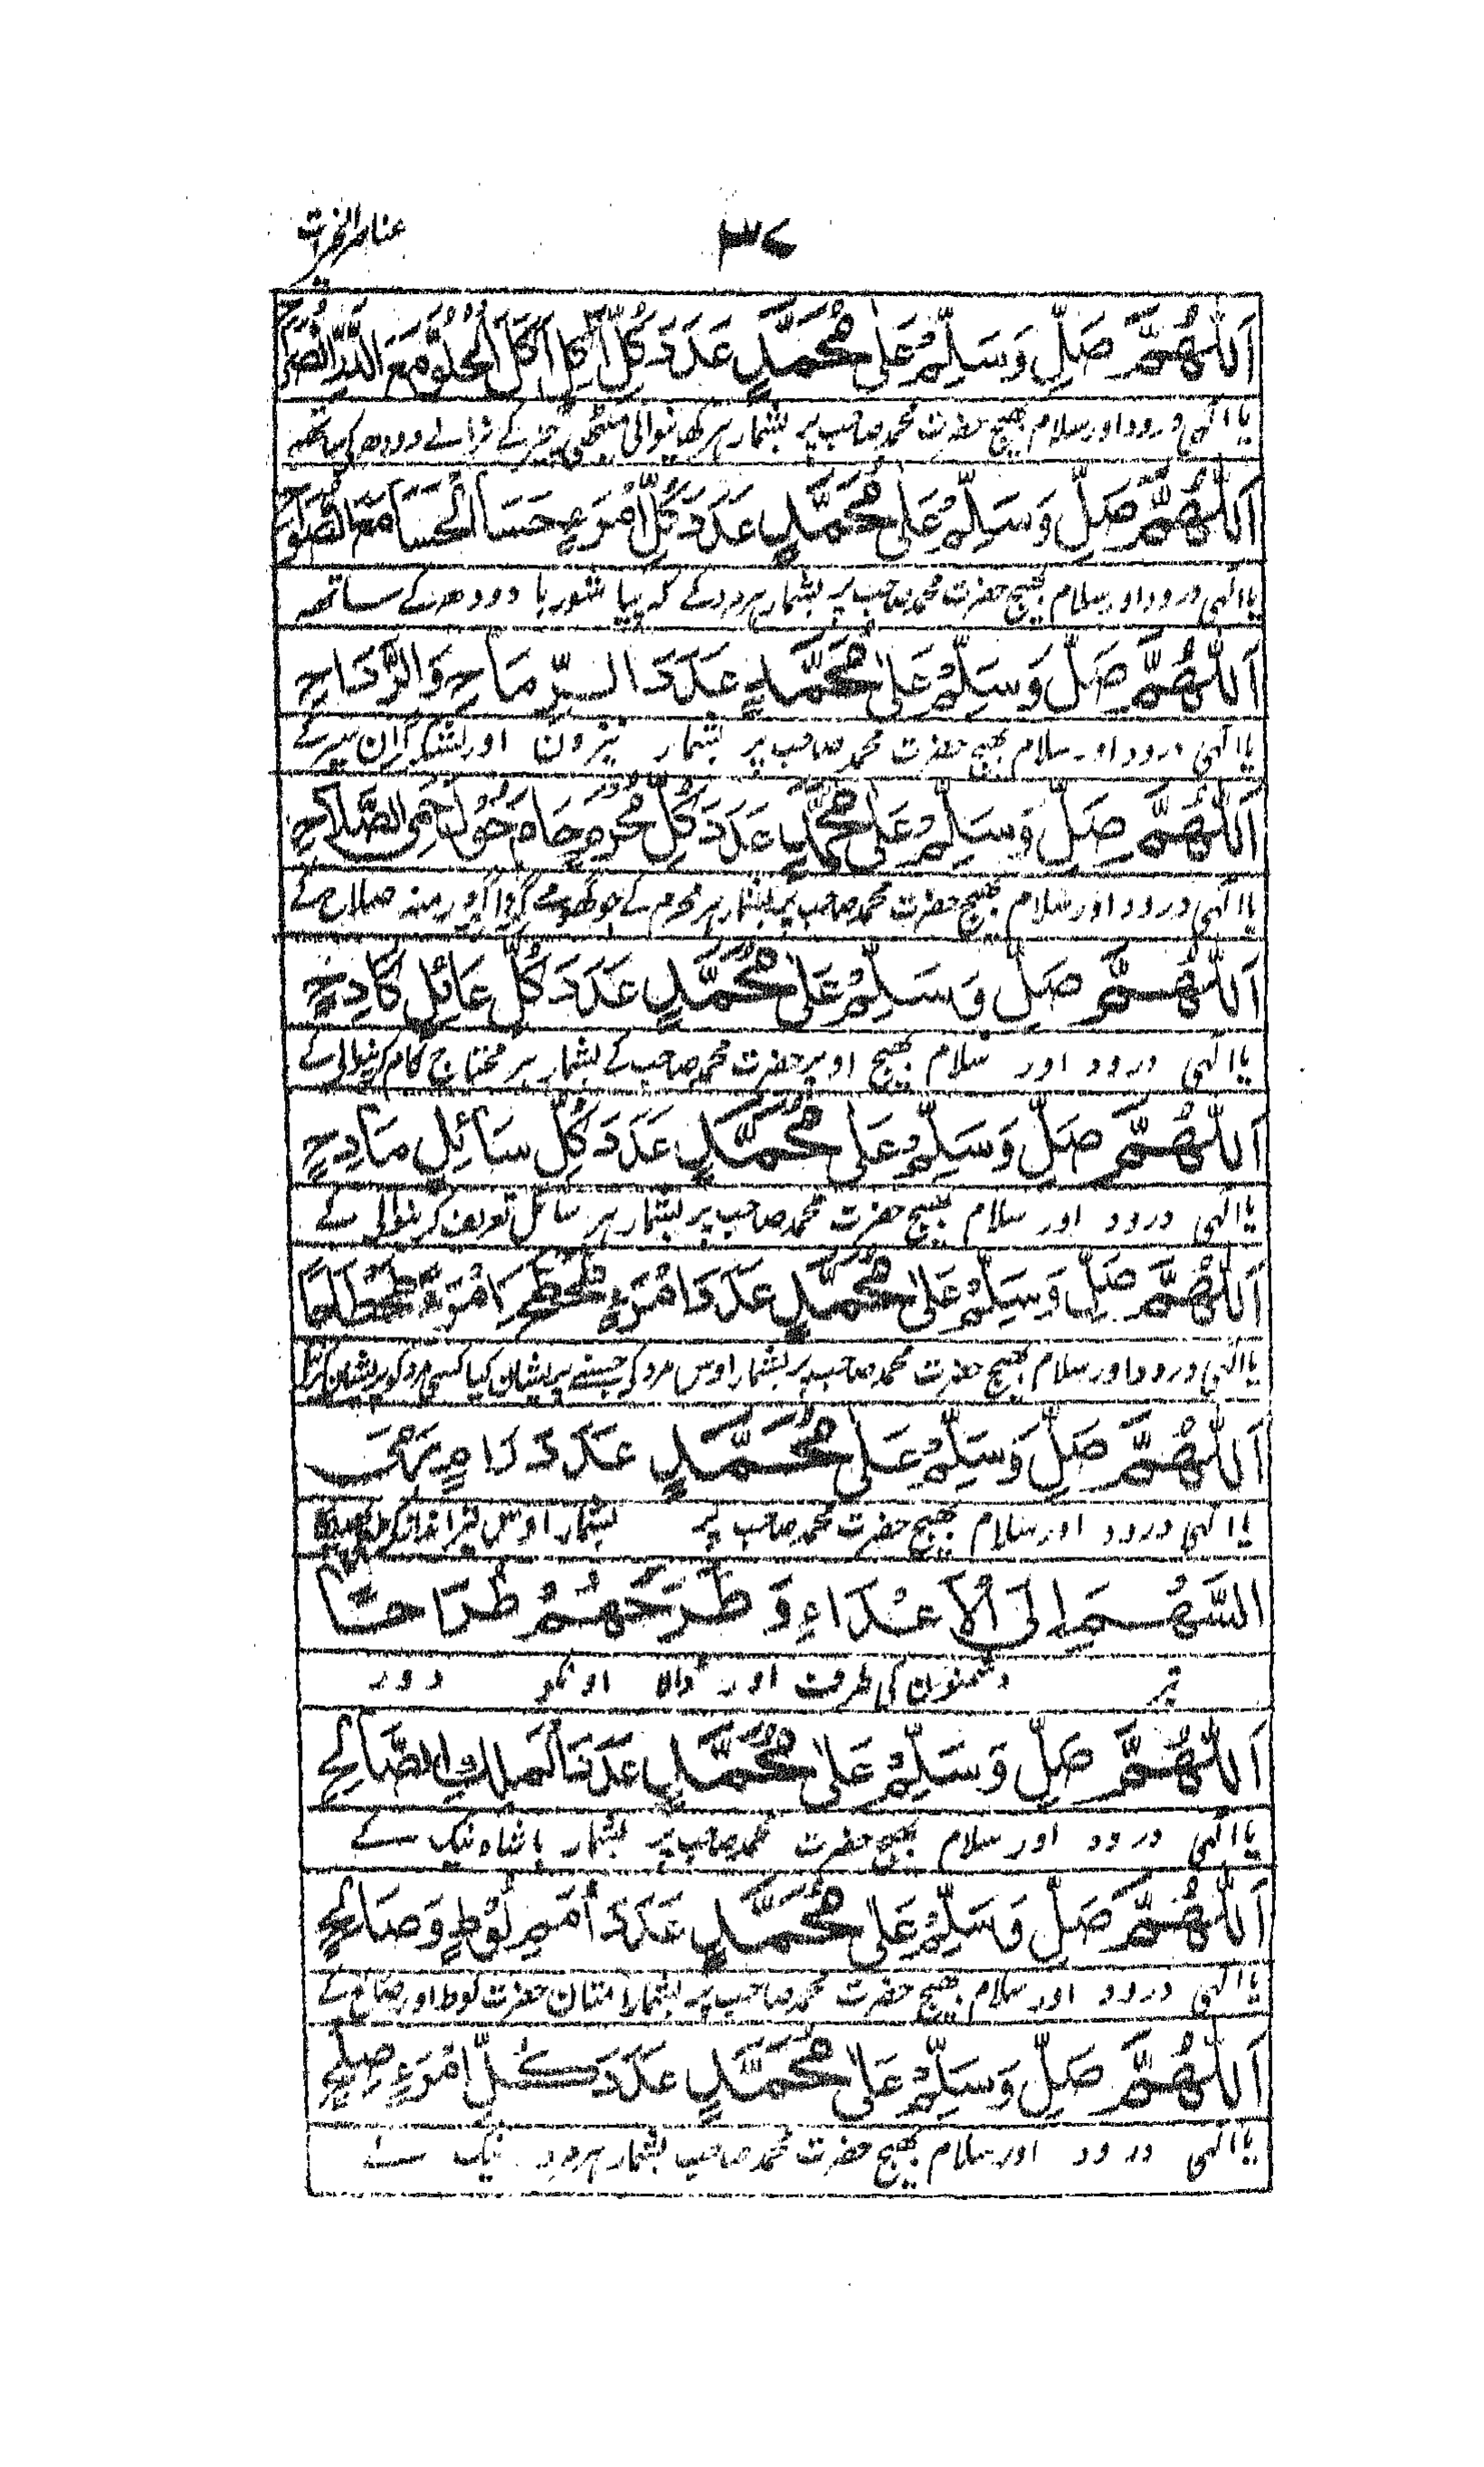 عناصر الخیرات
۳۷
اَللّٰهُمَّ صَلِّ وَسَلِّمْ عَلٰى مُحَمَّدٍ عَدَدَ كُلِّ اٰكِلٍ اَكَلَ الْحُلْوُمَ مَعَ اللَّبَنِ
یا الٰہی درود اور سلام بھیج حضرت محمد صاحب پر بشمار ہر کھانیوالی میٹھی چیز کے دودھ کی ساتھہ
اَللّٰهُمَّ صَلِّ وَسَلِّمْ عَلٰى مُحَمَّدٍ عَدَدَ كُلِّ امْرَءٍ حَسَا الْحَسَا مَعَ الصَّبُوحِ
یا الٰہی درود اور سلام بھیج حضرت محمد صاحب پر بشمار ہر مرد کے کہ پیا شوربا دودھ کے ساتھہ
اَللّٰهُمَّ صَلِّ وَسَلِّمْ عَلٰى مُحَمَّدٍ عَدَدَ الرِّمَاحِ وَالرَّدَاحِ
یا الٰہی درود اور سلام بھیج حضرت محمد صاحب پر بشمار نیزون اور لشکر گران سیر کے
اَللّٰهُمَّ صَلِّ وَسَلِّمْ عَلٰى مُحَمَّدٍ عَدَدَ كُلِّ مُحْرِمٍ حَامَ حَوْلَ حِمَى الصَّلَاحِ
یا الٰہی درود اور سلام بھیج حضرت محمد صاحب پر بشمار ہر محرم کے جو گھومے گردا گرد رمنہ صلاح کے
اَللّٰهُمَّ صَلِّ وَسَلِّمْ عَلٰى مُحَمَّدٍ عَدَدَ كُلِّ عَائِلٍ كَادِحٍ
یا الٰہی درود اور سلام بھیج اوپر حضرت محمد صاحب کے بشمار ہر محتاج کام کرنیوالی کے
اَللّٰهُمَّ صَلِّ وَسَلِّمْ عَلٰى مُحَمَّدٍ عَدَدَ كُلِّ سَائِلٍ مَادِحٍ
یا الٰہی درود اور سلام بھیج حضرت محمد صاحب پر بشمار ہر سائل تعریف کرنیوالی کے
اَللّٰهُمَّ صَلِّ وَسَلِّمْ عَلٰى مُحَمَّدٍ عَدَدَ امْرَءٍ طَحْطَحَ امْرَءً طَحْطَاحًا
یا الٰہی درود اور سلام بھیج حضرت محمد صاحب پر بشمار اوس مرد کی جسنے پریشان کیا کسی مرد کو پریشان کرنا
اَللّٰهُمَّ صَلِّ وَسَلِّمْ عَلٰى مُحَمَّدٍ عَدَدَ رَامٍ رَمٰى
یا الٰہی درود اور سلام بھیج حضرت محمد صاحب پر بشمار اوس تیر انداز
السَّهْمَ اِلَى الْاَعْدَاءِ وَطَرَحَهُمْ طَرَاحًا
تیر دشمنون کی طرف اور ڈالا اونکو دور
اَللّٰهُمَّ صَلِّ وَسَلِّمْ عَلٰى مُحَمَّدٍ عَدَدَ الْمَلِكِ الصَّالِحِ
یا الٰہی درود اور سلام بھیج حضرت محمد صاحب پر بشمار باشاہ نیک کے
اَللّٰهُمَّ صَلِّ وَسَلِّمْ عَلٰى مُحَمَّدٍ عَدَدَ اُمَمِ لُوْطٍ وَصَالِحٍ
یا الٰہی درود اور سلام بھیج حضرت محمد صاحب پر بشمار امتان حضرت لوط اور صالح کے
اَللّٰهُمَّ صَلِّ وَسَلِّمْ عَلٰى مُحَمَّدٍ عَدَدَ كُلِّ امْرَءٍ صِلْحٍ
یا الٰہی درود اور سلام بھیج حضرت محمد صاحب بشمار ہر مرد نیک کے